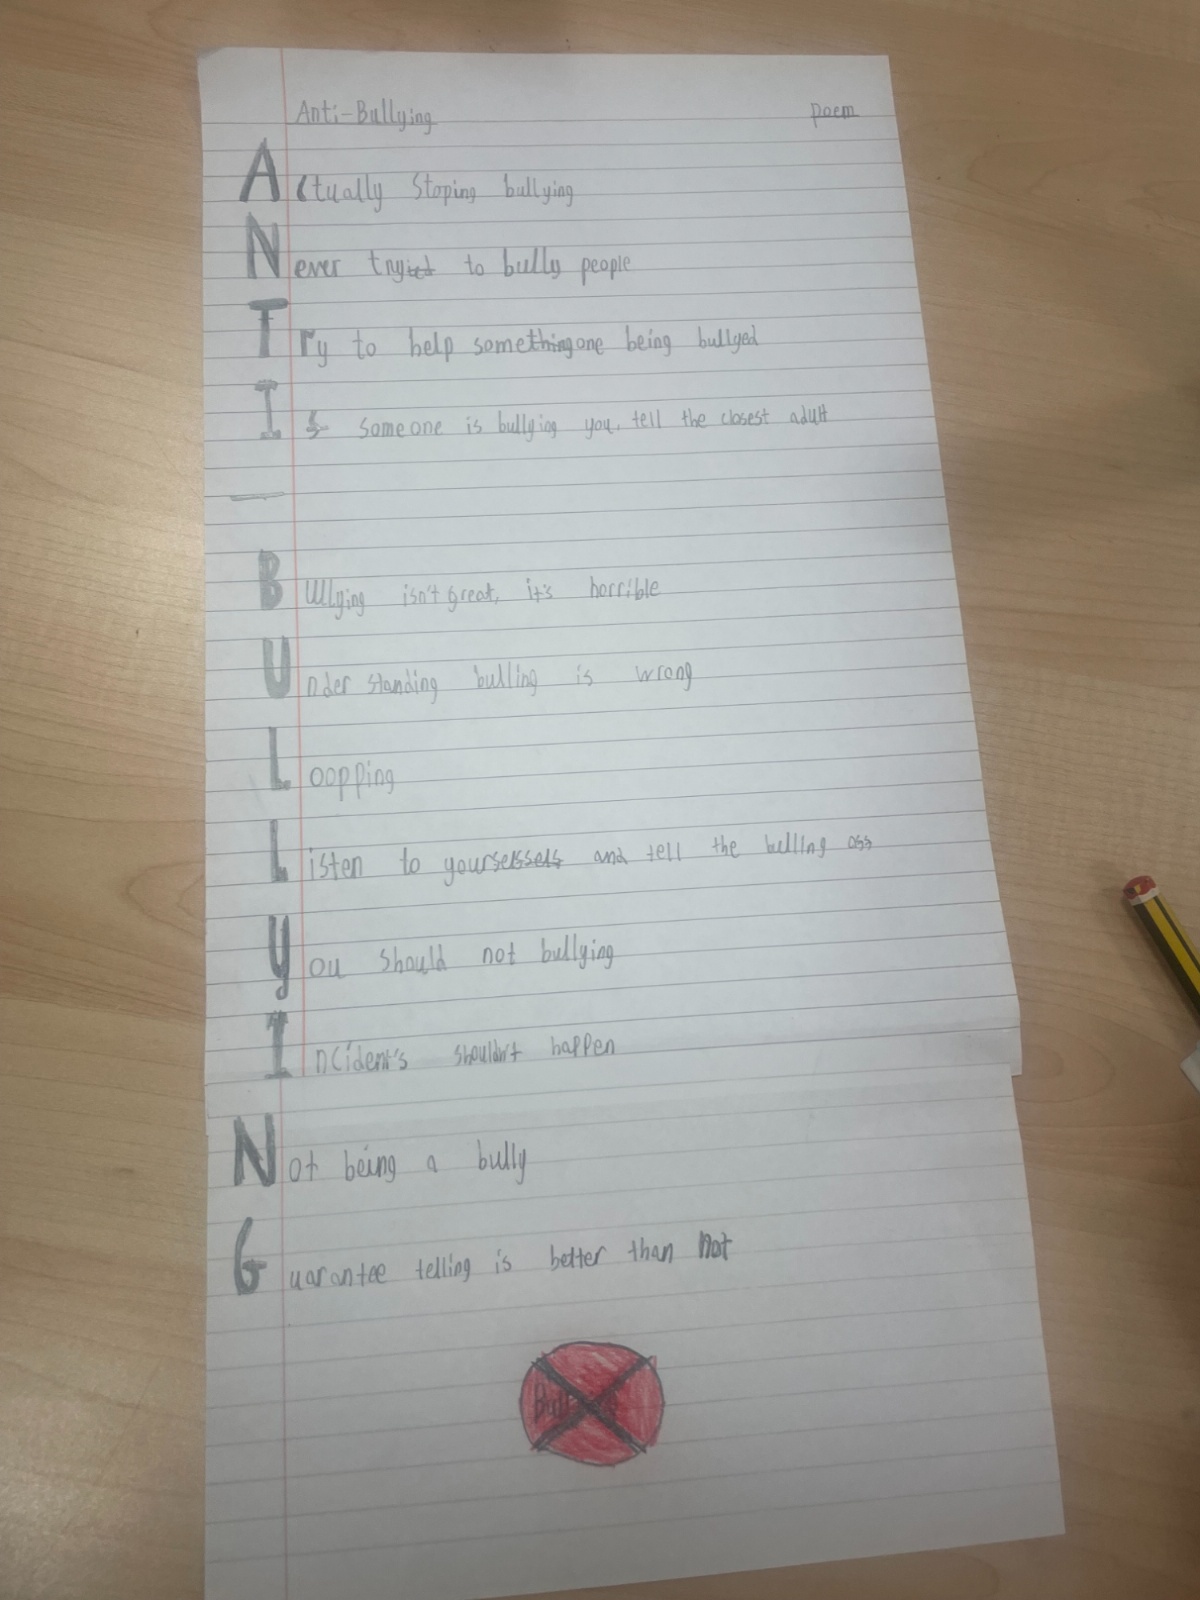 Anti-Bullying poem
Actually Stoping bullying
Never try to bully people
Try to help someone being bullyed
If someone is bullying you, tell the closest adult
-
Bullying isn't great, it's horrible
Under standing bulling is wrong
Loopping
Listen to and tell the bulling
You should not bullying
Incident's shouldn't happen
Not being a bully
Guarantee telling is better than not